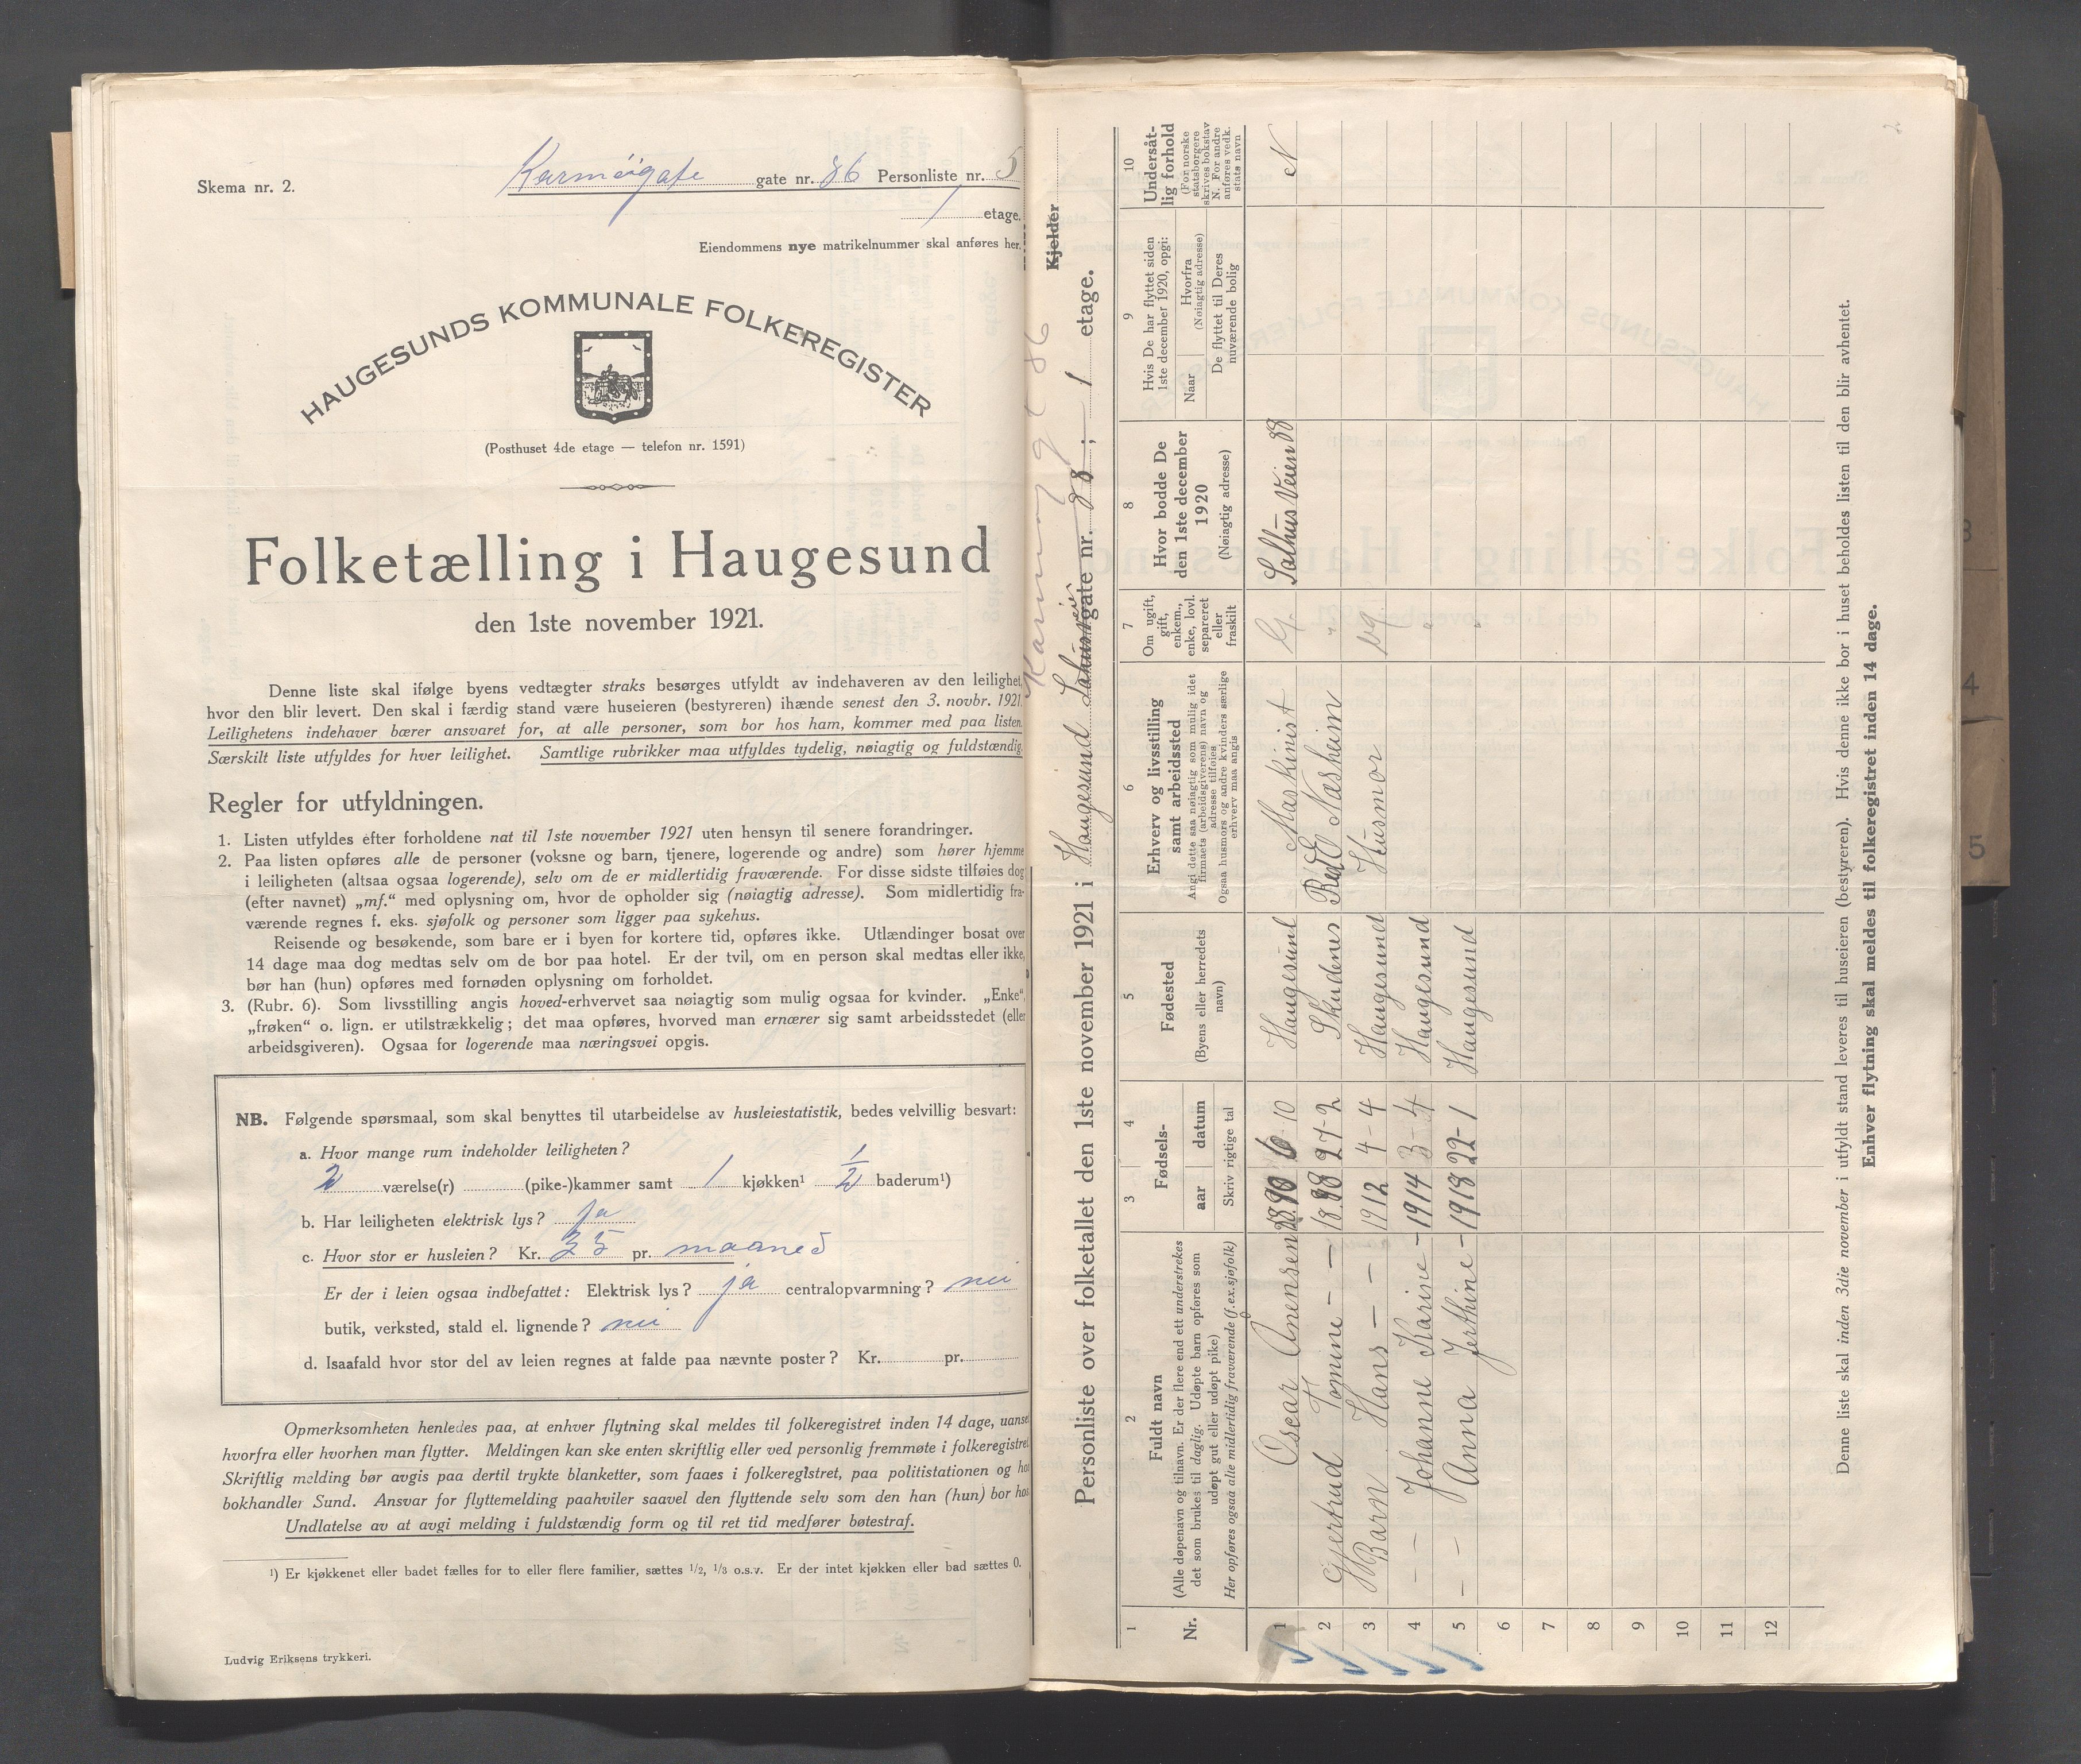 Skema nr. 2.
Karmøigate gate nr. 86 Personliste nr. 5
1 etage.
Eiendommens nye matrikelnummer skal anføres her.
HAUGESUNDS KOMMUNALE FOLKEREGISTER
(Posthuset 4de etage — telefon nr. 1591)
Folketælling i Haugesund
den 1ste november 1921.
Denne liste skal ifølge byens vedtægter straks besørges utfyldt av indehaveren av den leilighet,
hvor den blir levert. Den skal i færdig stand være huseieren (bestyreren) ihænde senest den 3. novbr. 1921.
Leilighetens indehaver bærer ansvaret for, at alle personer, som bor hos ham, kommer med paa listen.
Særskilt liste utfyldes for hver leilighet. Samtlige rubrikker maa utfyldes tydelig, nøiagtig og fuldstændig.
Regler for utfyldningen.
1. Listen utfyldes efter forholdene nat til 1ste november 1921 uten hensyn til senere forandringer.
2. Paa listen opføres alle de personer (voksne og barn, tjenere, logerende og andre) som hører hjemme
i leiligheten (altsaa ogsaa logerende), selv om de er midlertidig fraværende. For disse sidste tilføies dog
(efter navnet) „mf.“ med oplysning om, hvor de opholder sig (nøiagtig adresse). Som midlertidig fra-
værende regnes f. eks. sjøfolk og personer som ligger paa sykehus.
Reisende og besøkende, som bare er i byen for kortere tid, opføres ikke. Utlændinger bosat over
14 dage maa dog medtas selv om de bor paa hotel. Er der tvil, om en person skal medtas eller ikke,
bør han (hun) opføres med fornøden oplysning om forholdet.
3. (Rubr. 6). Som livsstilling angis hoved-erhvervet saa nøiagtig som mulig ogsaa for kvinder. „Enke“,
„frøken“ o. lign. er utilstrækkelig; det maa opføres, hvorved man ernærer sig samt arbeidsstedet (eller
arbeidsgiveren). Ogsaa for logerende maa næringsvei opgis.
NB. Følgende spørsmaal, som skal benyttes til utarbeidelse av husleiestatistik, bedes velvillig besvart:
a. Hvor mange rum indeholder leiligheten?
2 værelse(r) (pike-)kammer samt 1 kjøkken¹ 1/2 baderum¹)
b. Har leiligheten elektrisk lys? ja
c. Hvor stor er husleien? Kr. 35 pr. maaned
Er der i leien ogsaa indbefattet: Elektrisk lys? ja centralopvarmning? nei
butik, verksted, stald el. lignende? nei
d. Isaafald hvor stor del av leien regnes at falde paa nævnte poster? Kr. pr.
Opmerksomheten henledes paa, at enhver flytning skal meldes til folkeregistret inden 14 dage, uanset
hvorfra eller hvorhen man flytter. Meldingen kan ske enten skriftlig eller ved personlig fremmøte i folkeregistret
Skriftlig melding bør avgis paa dertil trykte blanketter, som faaes i folkeregistret, paa politistationen og hos
bokhandler Sund. Ansvar for flyttemelding paahviler saavel den flyttende selv som den han (hun) bor hos
Undlatelse av at avgi melding i fuldstændig form og til ret tid medfører bøtestraf.
¹) Er kjøkkenet eller badet fælles for to eller flere familier, sættes 1/2, 1/3 o.s.v. Er der intet kjøkken eller bad sættes 0.
Ludvig Eriksens trykkeri.
Karmøy gt 86
Kjelder
Personliste over folketallet den 1ste november 1921 i Haugesund Salhusveien gate nr. 88 ; 1 etage.
1 2 3 4 5 6 7 8 9 10
Nr.
Fuldt navn
(Alle døpenavn og tilnavn. Er der flere end ett understrekes
det som brukes til daglig. Udøpte barn opføres som
udøpt gut eller udøpt pike)
Her opføres ogsaa alle midlertidig fraværende (f.ex. sjøfolk)
Fødsels-
aar datum
Skriv rigtige tal
Fødested
(Byens eller herredets
navn)
Erhverv og livsstilling
samt arbeidssted
Angi dette saa nøiagtig som mulig idet
firmaets (arbeidsgiverens) navn og
adresse tilføies
Ogsaa husmors og andre kvinders særlige
erhverv maa angis
Om ugift,
gift,
enkem.,
enke, lovl.
separeret
eller
fraskilt
Hvor bodde De
den 1ste december
1920
(Nøiagtig adresse)
Hvis De har flyttet siden
1ste december 1920, opgi:
Naar
Hvorfra
(Nøiagtig adresse)
De flyttet til Deres
nuværende bolig
Undersåt-
lig forhold
(For norske
statsborgere
skrives bokstav
N. For andre
anføres vedk.
stats navn
1 Oscar Anensen 1890 6-10 Haugesund Maskinist G. Salhus-Veien 88 N
2 Gjertrud Tomine — — 1888 27-2 Skudenes Red E Næsheim "
3 Barn Hans — — 1912 4-4 Haugesund Husmor ug
4 — — Johanne Karine — 1914 3-4 Haugesund "
5 — — Anna Jerthine — 1918 22-1 Haugesund "
6
7
8
9
10
11
12
Denne liste skal inden 3die november i utfyldt stand leveres til huseieren (bestyreren). Hvis denne ikke bor i huset beholdes listen til den blir avhentet.
Enhver flytning skal meldes til folkeregistret inden 14 dage.
3
4
5